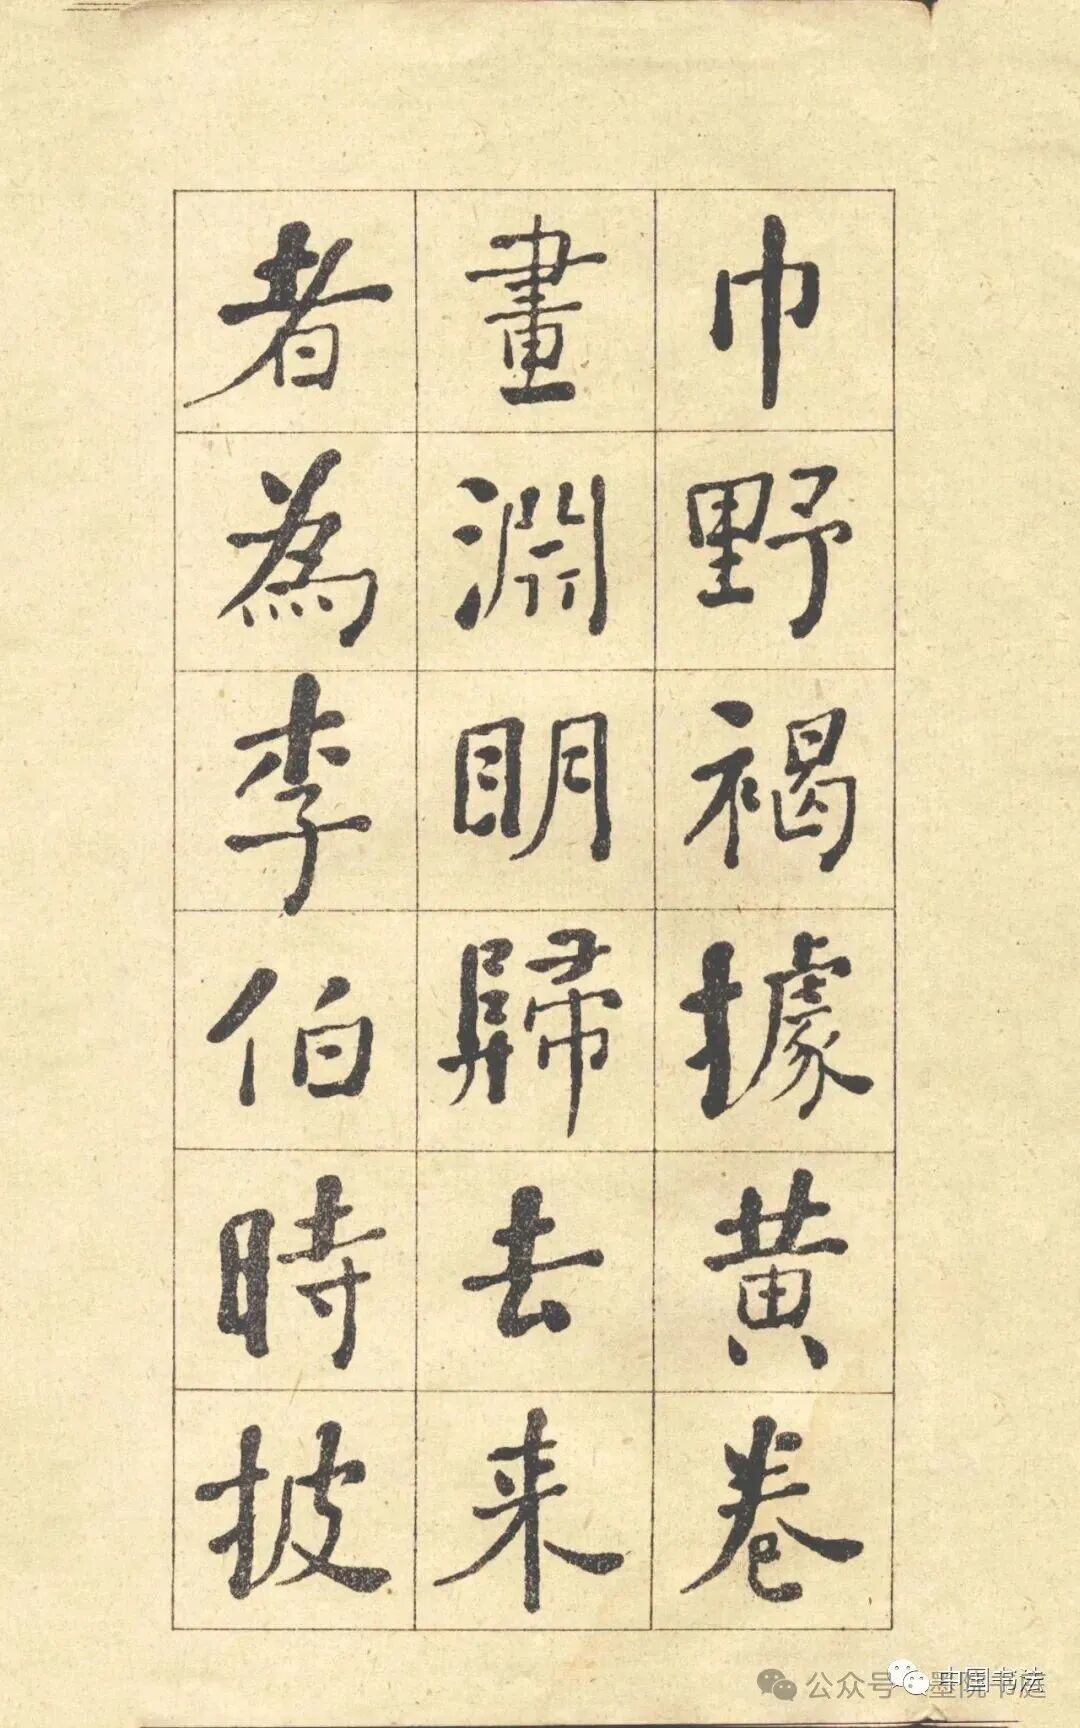 巾野褐據黄卷
畫淵明歸去来
者為李伯時披
公众号
中国书法